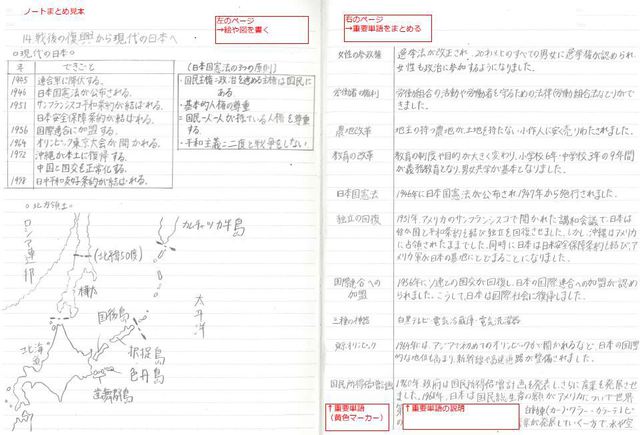 ノートまとめ見本
左のページ
→絵や図を書く
右のページ
→重要単語をまとめる
14 戦後の復興から現代の日本へ
○現代の日本○
年 できごと
1945 連合軍に降伏する。
1946 日本国憲法が公布される。
1951 サンフランシスコ平和条約が結ばれる。
日米安全保障条約が結ばれる。
1956 国際連合に加盟する。
1964 オリンピック東京大会が開かれる。
1972 沖縄が本土に復帰する。
中国と国交を正常化する。
1978 日中平和友好条約が結ばれる。
(日本国憲法の3つの原則)
・国民主権=政治を進める主権は国民に
ある。
・基本的人権の尊重
=国民一人一人が持っている人権を尊重
する。
・平和主義=二度と戦争をしない
○北方領土○
ロシア連邦
カムチャツカ半島
(北緯50度)
樺太
太平洋
国後島
北海道
択捉島
色丹島
歯舞群島
女性の参政権 選挙法が改正され、20才以上のすべての男女に選挙権が認められ、
女性も政治に参加するようになりました。
労働者の権利 労働組合の活動や労働者を守るための法律(労働組合法)などがで
きました。
農地改革 地主の持つ農地が、土地を持たない小作人に安く売りわたされました。
教育の改革 教育の制度や目的が大きく変わり、小学校6年・中学校3年の9年間
が義務教育となり、男女共学が基本となりました。
日本国憲法 1946年に日本国憲法が公布され1947年から施行されました。
独立の回復 1951年、アメリカのサンフランシスコで開かれた講和会議で、日本は
48か国と平和条約を結び独立を回復させました。しかし、沖縄はアメリカ
に占領されたままでした。同時に日本は日米安全保障条約を結び、ア
メリカ軍が日本の基地にとどまることになりました。
国際連合への
加盟
1956年にソ連との国交が回復し、日本の国際連合への加盟が認め
られました。こうして、日本は国際社会に復帰しました。
三種の神器 白黒テレビ・電気冷蔵庫・電気洗濯器
東京オリンピック 1964年には、アジアで初めてのオリンピックが開かれるなど、日本の国際
的な地位も高まり、新幹線や高速道路が整備されました。
国民所得倍増計画 1960年、政府は国民所得倍増計画を発表し、さらに産業を発展させ
ました。1968年、日本は国民総生産の額がアメリカについで世界
↑重要単語
(黄色マーカー)
↑重要単語の説明
(カー)・クーラー・カラーテレビ
が発展していく一方で、水や空